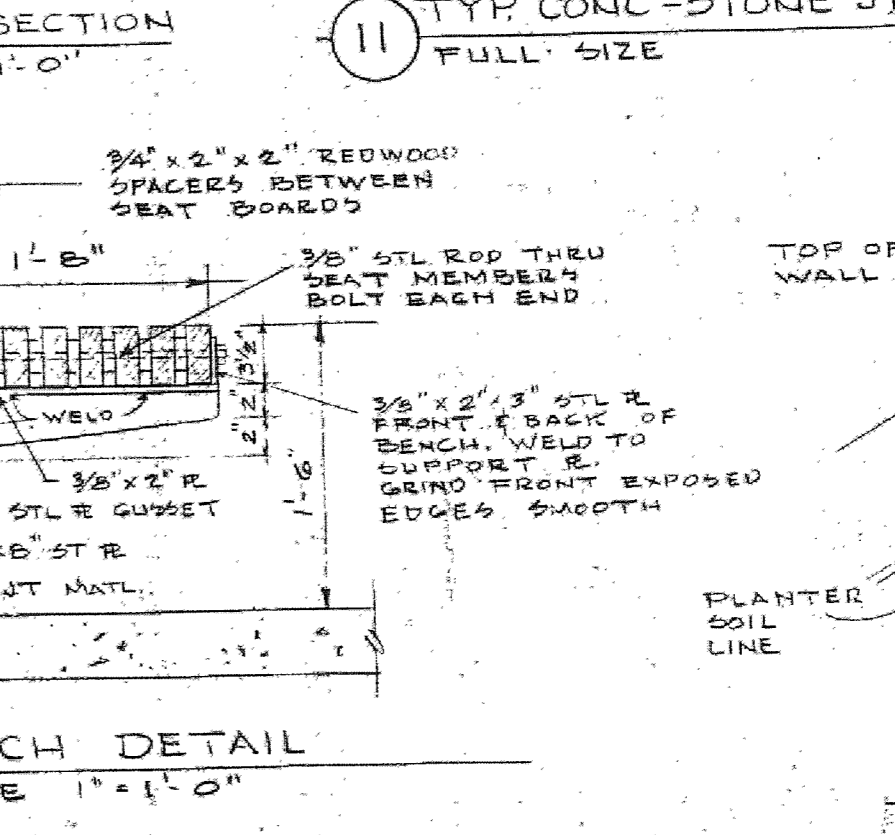 SECTION
1'-0"
11
TYP. CONC-STONE
FULL SIZE
3/4" x 2" x 2" REDWOOD
SPACERS BETWEEN
SEAT BOARDS
1'-8"
3/8" STL ROD THRU
SEAT MEMBERS
BOLT EACH END
TOP OF
WALL
3 1/2"
2"
2"
1'-6"
WELD
3/8" x 2" x 3" STL PL
FRONT & BACK OF
BENCH. WELD TO
SUPPORT PL.
GRIND FRONT EXPOSED
EDGES SMOOTH
3/8" x 2" PL
STL PL GUSSET
8" ST PL
NT MATL.
PLANTER
SOIL
LINE
CH DETAIL
E 1" = 1'-0"